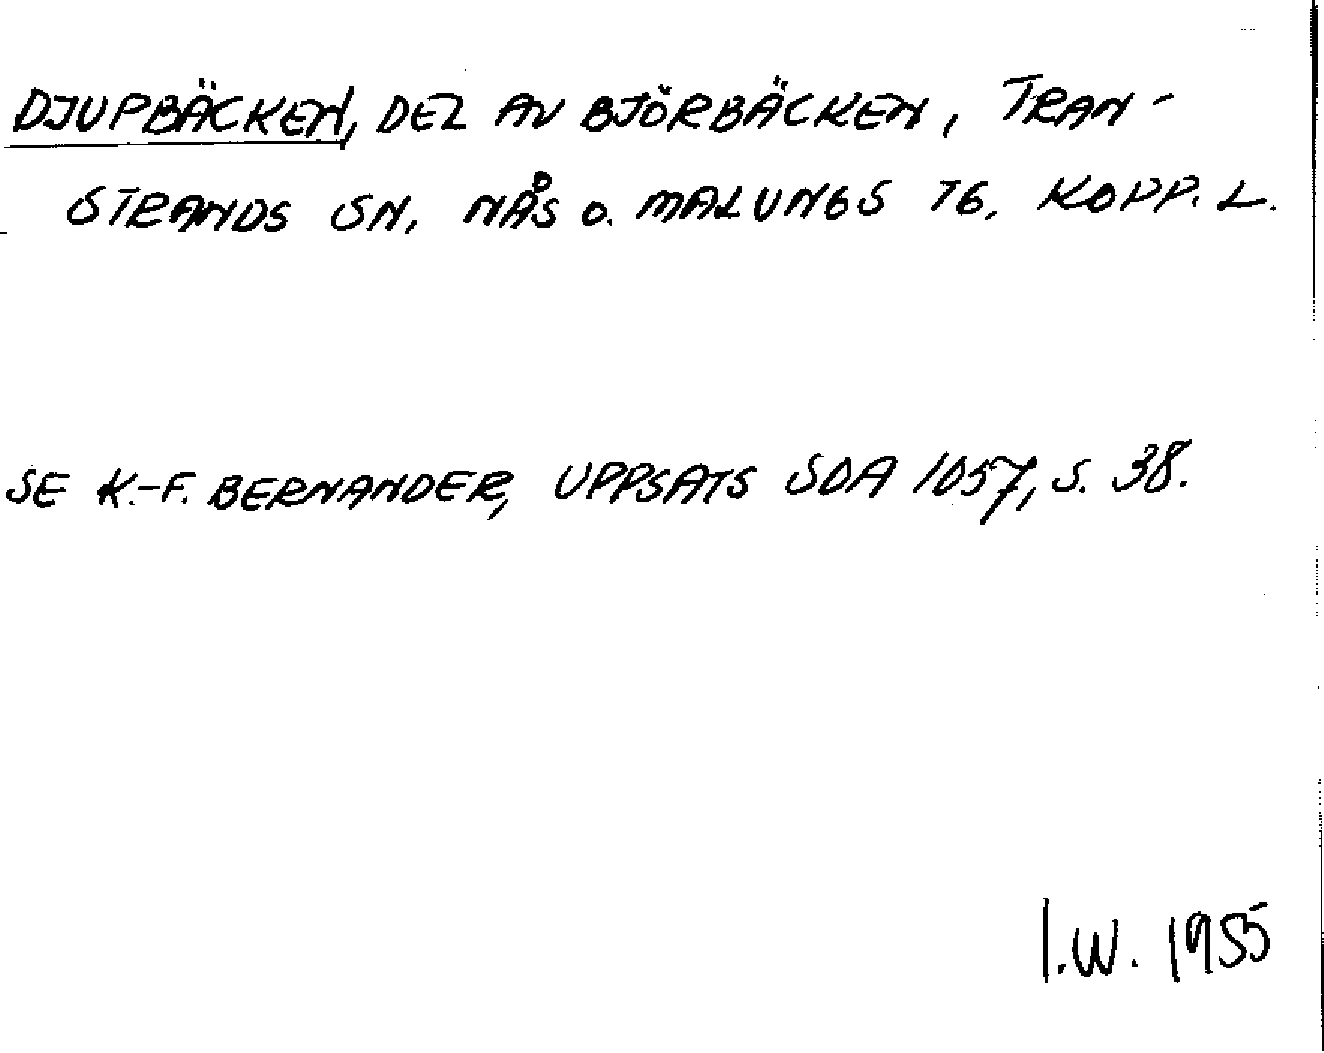 DJUPBÄCKEN, DEL AV BJÖRBÄCKEN, TRAN-
STRANDS SN, NÅS O. MALUNGS TG, KOPP. L.
SE K.-F. BERNANDER, UPPSATS SOA 1057, S. 38.
I.W. 1955